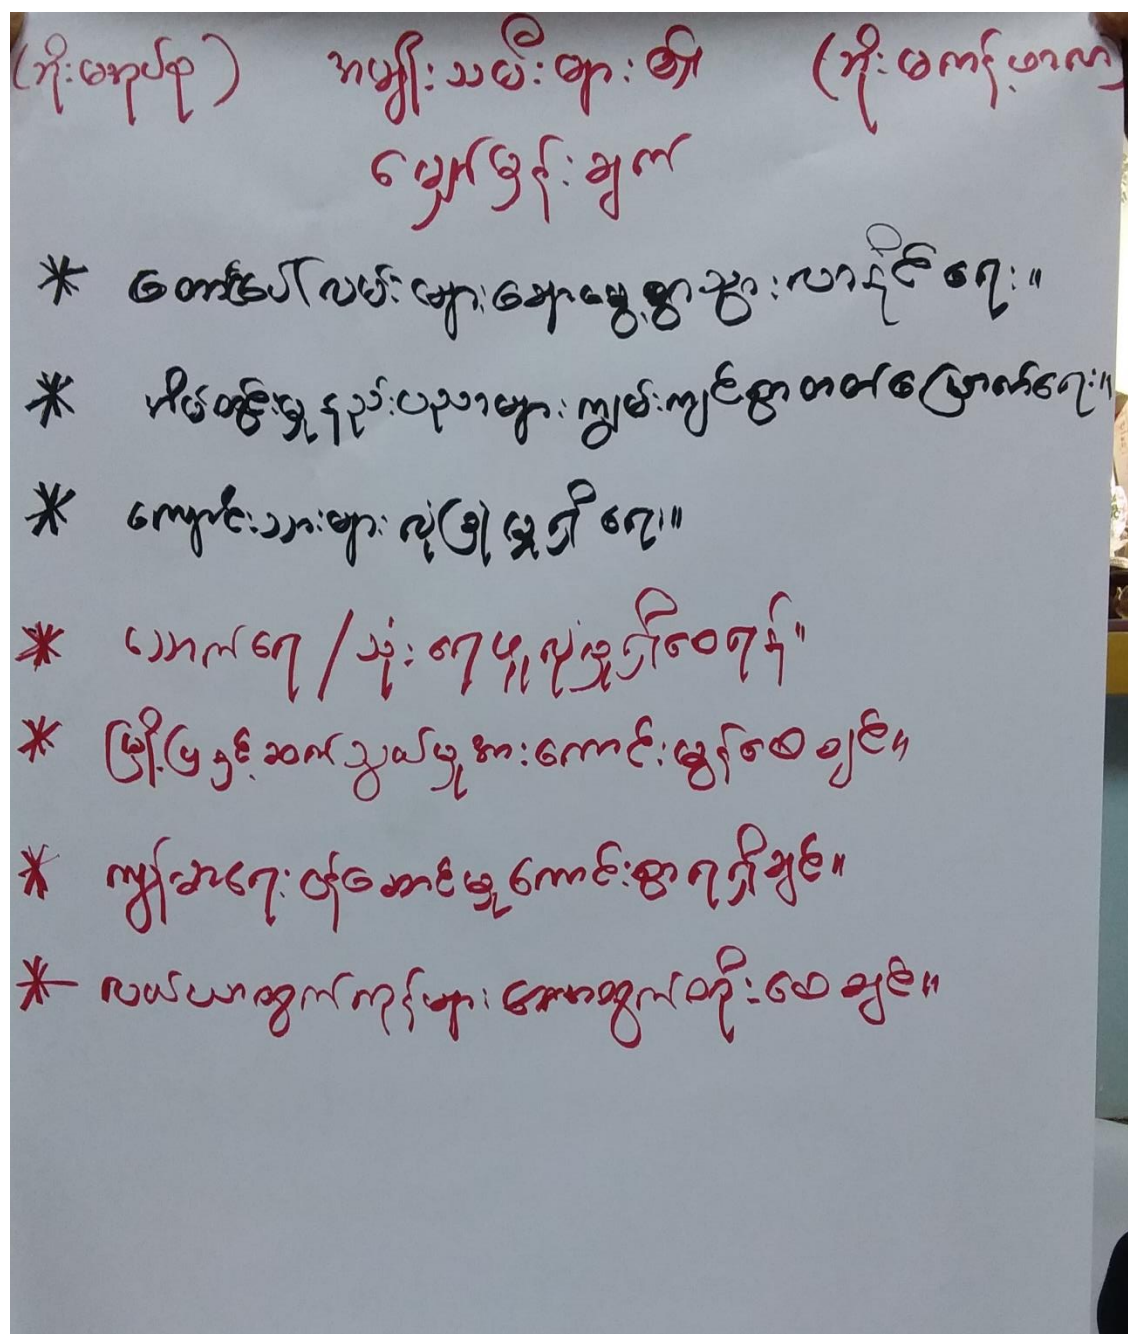 (ဘိုးမအုပ်စု) အမျိုးသမီးများ၏ (ဘိုးမကန့်ဖာလာ)
မျှော်မှန်းချက်
* တောင်ပေါ်လမ်းများချောမွေ့စွာသွားလာနိုင်ရေး။
* အိမ်တွင်းမှုနည်းပညာများကျွမ်းကျင်စွာတတ်မြောက်ရေး။
* ကျောင်းသားများလုံခြုံမှုရှိရေး။
* သောက်ရေ/သုံးရေဖူလုံမှုရှိစေရန်။
* မြို့ပြနှင့်ဆက်သွယ်မှုအားကောင်းမွန်စေချင်။
* ကျန်းမာရေးဝန်ဆောင်မှုကောင်းစွာရရှိချင်။
* လယ်ယာထွက်ကုန်များအောထွက်တိုးစေချင်။